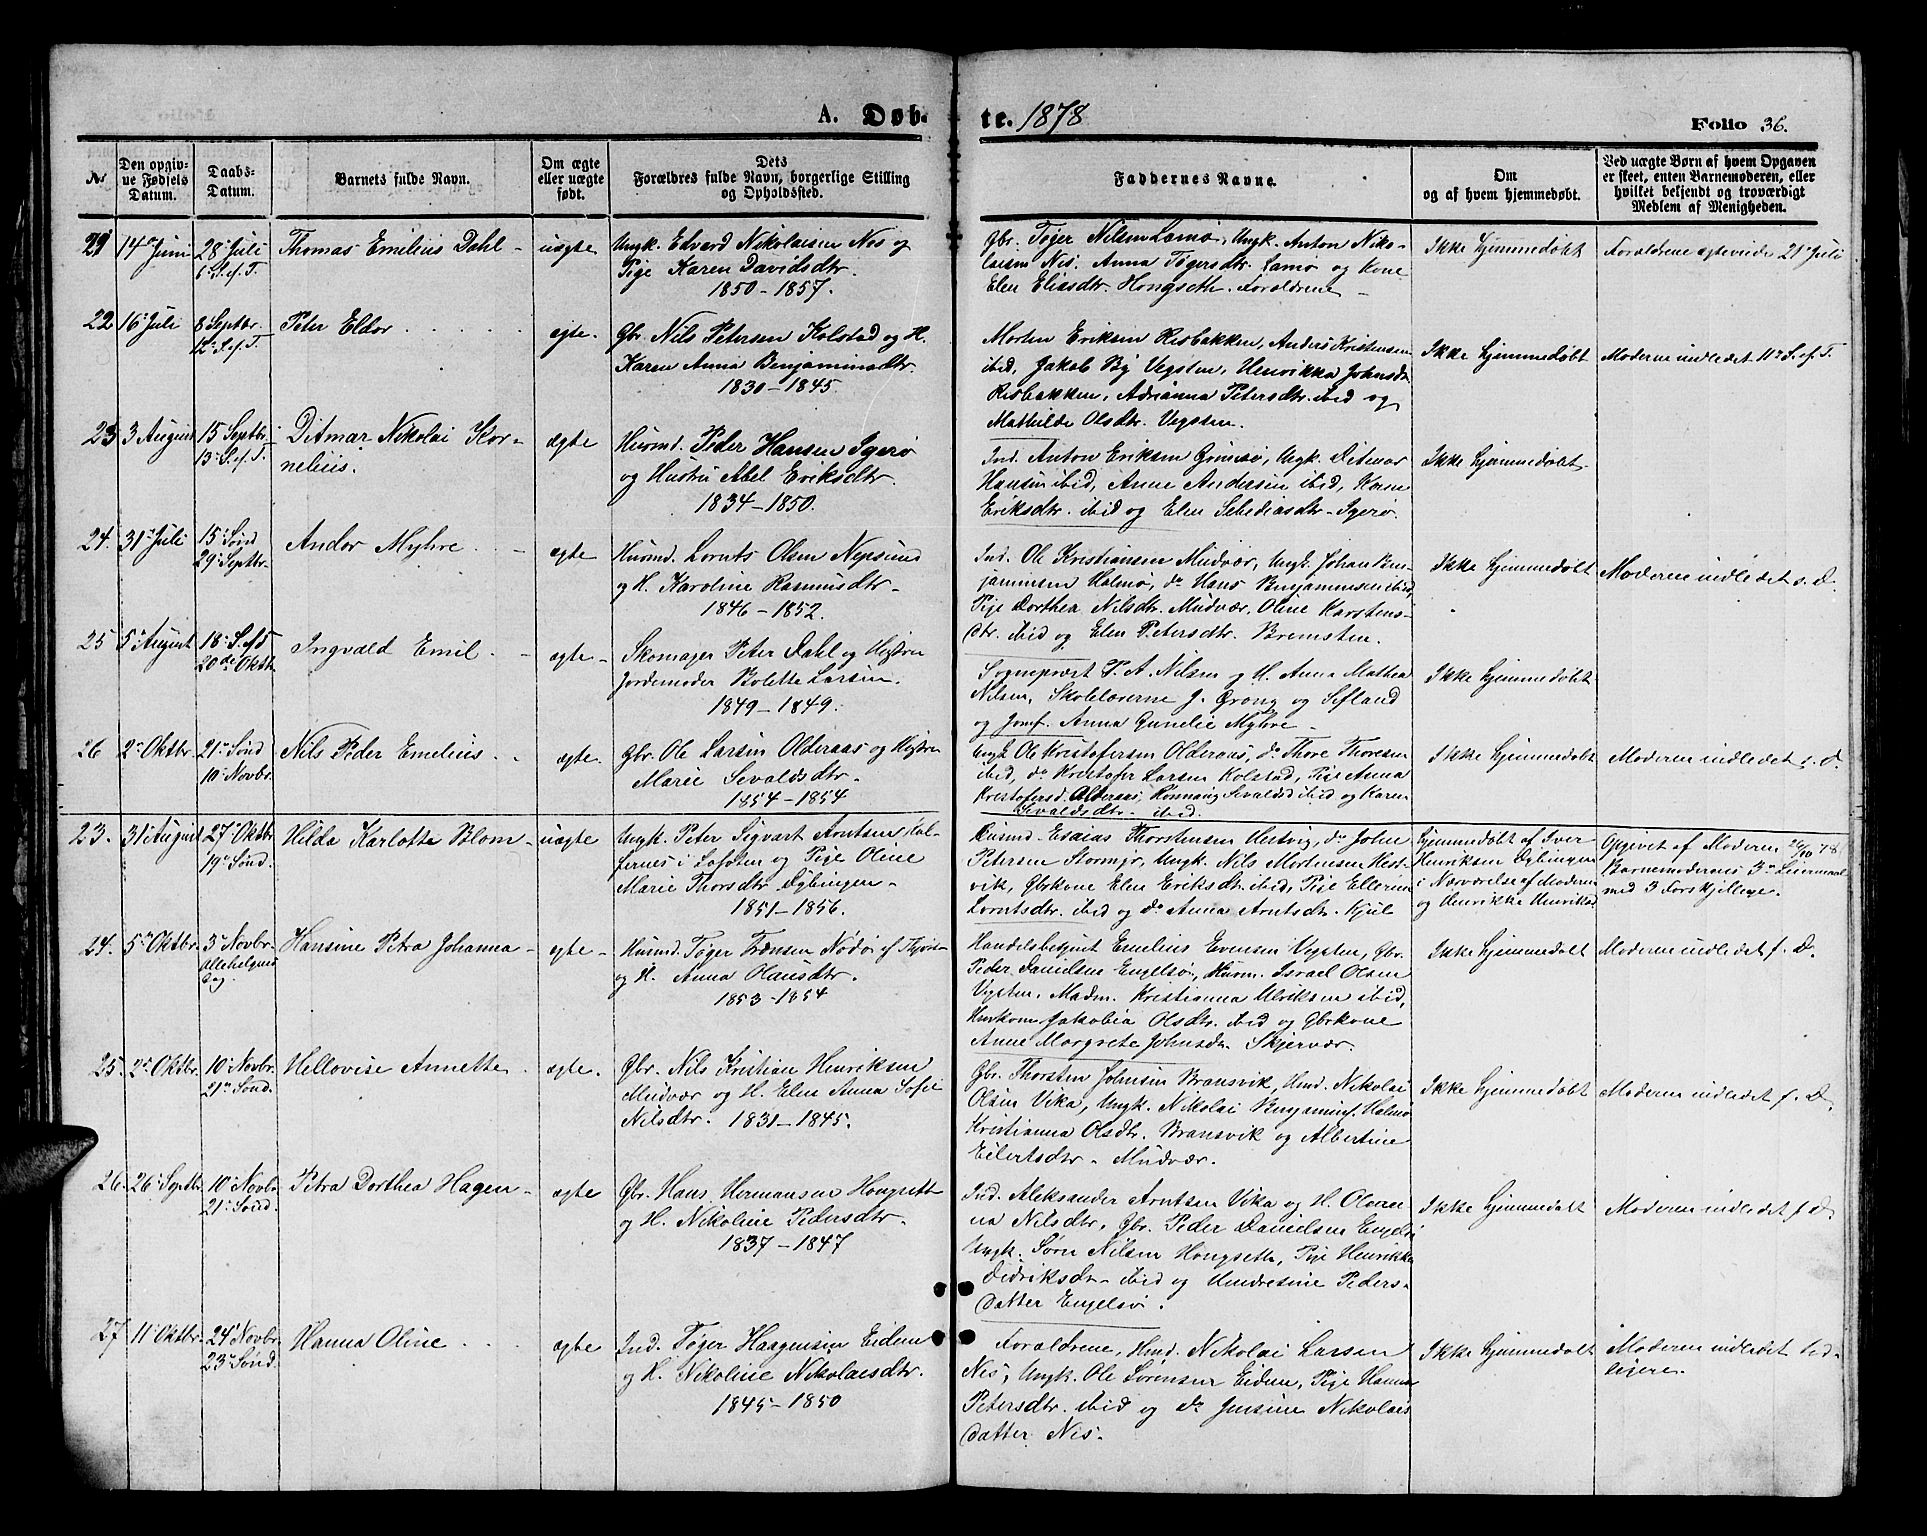 A. Døb-
te. 1878
Folio 36.
No
Den opgiv-
ne Fødsels
Datum.
Daabs-
Datum.
Barnets fulde Navn.
Om ægte
eller uægte
født.
Dets
Forældres fulde Navn, borgerlige Stilling
og Opholdssted.
Faddernes Navne.
Om
og af hvem hjemmedøbt.
Ved uægte Børn af hvem Opgaven
er skeet, enten Barnemoderen, eller
hvilket bekjendt og troværdigt
Medlem af Menigheden.
21 14de Juni 28 Juli Thomas Emilius Dahl - uægte
6 S. ef. T.
Ungk. Edvard Nikolaisen Nes og
Pige Karen Davidsdtr.
1850 - 1857.
Gbr. Tøger Nilsen Lamø, Ungk. Anton Niko-
laisen Nes. Anna Tøgersdtr. Lamø og Kone
Elen Eliasdtr. Hongseth. Forældrene -
Ikke hjemmedøbt
Forældrene ægteviede 21 Juli
22 16 Juli 8 Septbr. Peter Eldor ægte.
12 S. ef. T.
Gbr. Nils Petersen Kolstad og H.
Karen Anna Benjaminsdtr.
1830 - 1845.
Morten Eriksen Risbakken, Anders Kristensen
ibid, Jakob By Vegsten, Henrikka Johnsdr
Risbakken, Adrianna Petersdtr. ibid og
Mathilde Olsdtr. Vegsten.
Ikke hjemmedøbt
Moderen indledet 11te S. ef. T.
23 3 August 15 Septbr. Ditmar Nikolai Kor-
nelius. ægte
13 S. ef. T.
Husmd. Peder Hansen Igerø
og Hustru Abel Eriksdtr.
1834 - 1850.
Ind. Anton Eriksen Grimsø, Ungk. Ditmar
Hansen ibid, Anne Andersen ibid, Karen
Eriksdtr. ibid og Elen Sebediasdtr - Igerø.
Ikke hjemmedøbt
24. 31 Juli 15 Sønd Andor Myhre ægte
29 Septbr.
Husmd. Lornts Olsen Nepsund
og H. Karoline Rasmusdtr -
1846 - 1852.
Ind. Ole Kristiansen Mudvær, Ungk. Johan Ben-
jaminsen Halmø, do Hans Benjaminsen ibid,
Pige Dorthea Nilsdtr. Mudvær, Oline Karstens-
dtr. ibid og Elen Petersdtr. Bremsten.
Ikke hjemmedøbt
Moderen indledet s. D.
25 5 August 18 S. ef. Ingvald Emil ægte -
20de Oktb
Skomager Peter Dahl og Hustru
Jordemoder Bolette Larsen.
1849 - 1849.
Sognepræst P. A. Nilsen og H. Anna Mathea
Nilsen, Skolelærerne J. Grong og Sefland
og Jomf. Anna Gunelie Myhre -
Ikke hjemmedøbt
26 2 Oktbr. 21 Sønd Nils Peder Emelius. ægte.
10 Novbr.
Gbr. Ole Larsen Olderaas og Hustru
Marie Sevaldsdtr.
1854 - 1854
Ungk Ole Kristofersen Olderaas, do Thore Thoresen
ibid, do Kristofer Larsen Kolstad, Pige Anna
Kristofersd. Olderaas, Rønnaug Sevaldsd ibid og Karen
Sevaldsdtr. ibid.
Ikke hjemmedøbt
Moderen indledet s. d.
23. 31 August 27 Oktbr Hilda Karlotte Blom - uægte
19 Sønd.
Ungk. Peter Sigvart Arntsen
i Lofoten og Pige Oline
Marie Thorsdtr Dybingen -
1851 - 1856.
Husmd. Esaias Thorstensen Hestvig, do John
Petersen Stormjø, Ungk. Nils Mortensen Hest-
vik, Gbrkone Elen Eriksdtr. ibid, Pige Ellerine
Lorntsdtr. ibid og do Anna Arntsdtr. Kjul
Hjemmedøbt af Iver
Henriksen Dybingen
i Nærværelse af Moderen
og Henrikke Henriksd
Opgivet af Moderen 26/10 78
Barnemoderens 3die Leiermaal
med 3 forskjellige.
24. 5 Oktbr. 3 Novbr. Hansine Petra Johanna - ægte -
Allehelgens
Dag.
Husmd. Tøger Frensen Nødø
og H. Anna Olausdtr.
1853 - 1854
Handelsbetjent Emelius Evensen Vegsten, Gbr.
Peder Danielsen Engelsø, Husm. Israel Olsen
Vegsten, Madm. Kristianna Ulriksen ibid,
Huskone Jakobia Olsdtr. ibid og Gbrkone
Anne Margrete Johnsdr. Skjervær.
Ikke hjemmedøbt
Moderen indledet f. D.
25. 2 Oktbr. 10 Novbr. Hellovise Annette ægte.
21 Sønd.
Gbr. Nils Kristian Henriksen
Mudvær og H. Elen Anna Sofie
Nilsdtr. 1831 - 1845.
Gbr. Thorsten Johnsen Bransvik, Hmd. Nikolai
Olsen Vika, Ungk. Nikolai Benjaminsen Halmø
Kristianna Olsdtr. Bransvik og Albertine
Eilertsdtr - Mudvær.
Ikke hjemmedøbt
Moderen indledet f. D.
26. 26 Septbr 10 Novbr Petra Dorthea Hagen - ægte
21 Sønd.
Gbr. Hans Hermansen Hongseth
og H. Nikoline Pedersdtr.
1837 - 1847
Ind. Aleksander Arntsen Vika og H. Oleen-
na Nilsdtr, Gbr. Peder Danielsen Engelsø
Ungk. Sørn Nilsen Hongseth, Pige Henrikka
Didriksdr - ibid og Andresine Peders-
datter Engelsø.
Ikke hjemmedøbt
Moderen indledet f. D.
27 11 Oktbr. 24 Novbr. Hanna Oline ægte
23 Sønd.
Ind. Tøger Haagensen Eidem
og H. Nikoline Nikolaisdtr.
1845 - 1850
Forældrene, Hmd. Nikolai Larsen
Nes, Ungk. Ole Sørensen Eidem, Pige Hanna
Petersdtr. ibid og do Jensine Nikolais
datter Nes.
Ikke hjemmedøbt
Moderen indledet tid-
ligere.